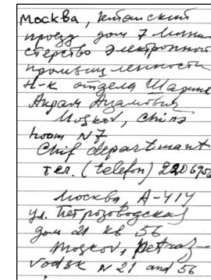 Москва, Китайский
проезд дом 7 Мини
стерство электронной
промышленности
Н-к отдела
Moskov, China
room N7
Chif department
тел. (telefon)
Москва, А-414
ул. Петрозаводская
дом 21 кв 56
Moskov, Petraz-
vodsk N 21 and 56